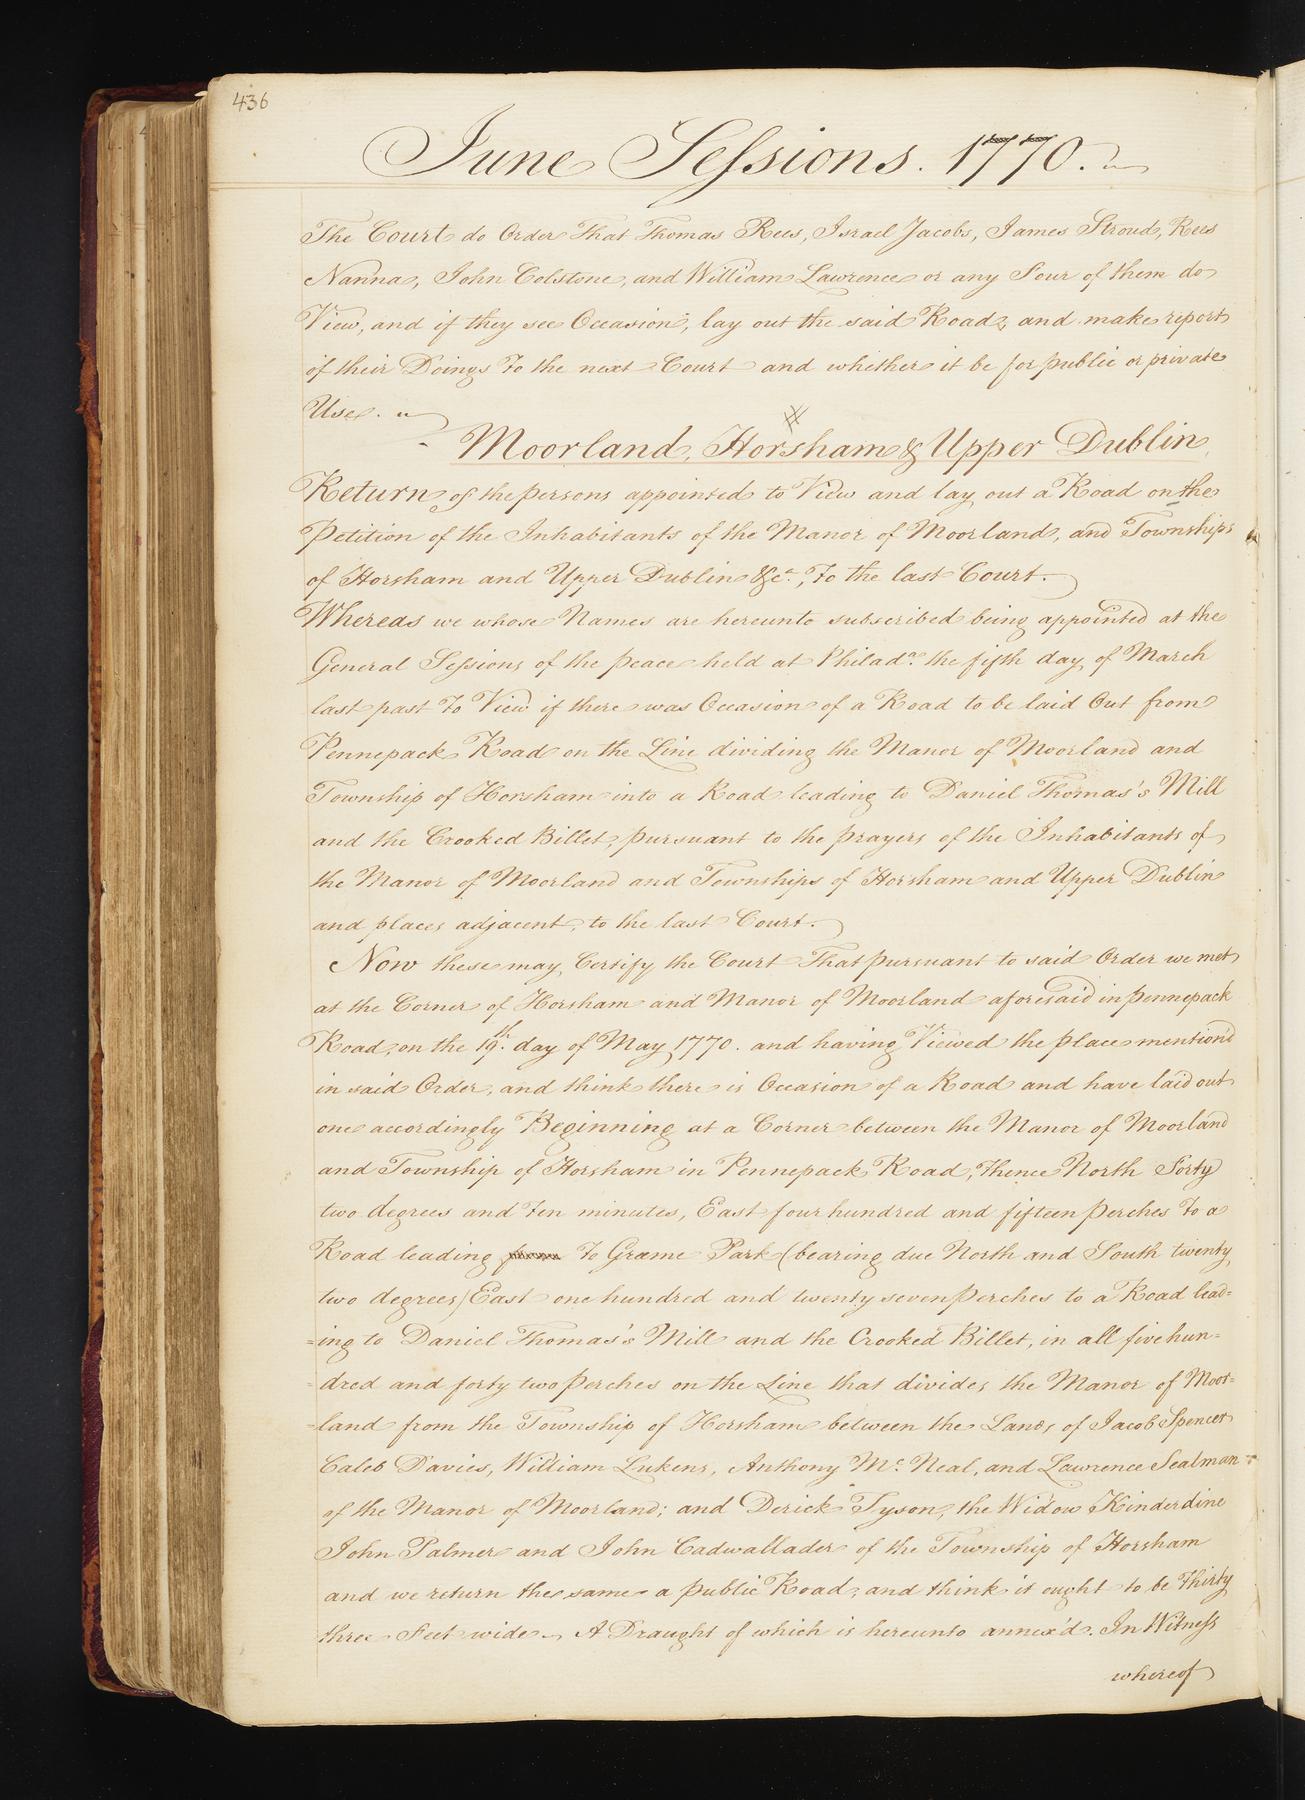 436
June Sessions. 1770.
The Court do Order That Thomas Rees, Israel Jacobs, James Stroud, Rees
Nanna, John Colstone, and William Lawrence or any Four of them do
View, and if they see Occasion, lay out the said Road, and make report
of their Doings To the next Court and whether it be for public or private
Use.
#
Moorland, Horsham & Upper Dublin.
Return of the persons appointed to View and lay out a Road on the
Petition of the Inhabitants of the Manor of Moorland, and Townships
of Horsham and Upper Dublin &ca., To the last Court.
Whereas we whose Names are hereunto subscribed being appointed at the
General Sessions of the peace held at Philada. the fifth day of March
last past To View if there was Occasion of a Road to be laid Out from
Pennepack Road on the Line dividing the Manor of Moorland and
Township of Horsham into a Road leading to Daniel Thomas's Mill
and the Crooked Billet, pursuant to the prayers of the Inhabitants of
the Manor of Moorland and Townships of Horsham and Upper Dublin
and places adjacent, to the last Court.
Now these may Certify the Court That pursuant to said Order we met
at the Corner of Horsham and Manor of Moorland aforesaid in pennepack
Road, on the 19th. day of May 1770. and having Viewed the place mention'd
in said Order, and think there is Occasion of a Road and have laid out
one accordingly Beginning at a Corner between the Manor of Moorland
and Township of Horsham in Pennepack Road, Thence North Forty
two degrees and Ten minutes, East four hundred and fifteen perches To a
Road leading To Græme Park (bearing due North and South twenty
two degrees) East one hundred and twenty seven perches to a Road lead=
=ing to Daniel Thomas's Mill and the Crooked Billet, in all five hun=
=dred and forty two perches on the Line that divides the Manor of Moor=
=land from the Township of Horsham between the Lands of Jacob Spencer
Caleb Davies, William Lukens, Anthony Mc. Neal, and Lawrence Sealman
of the Manor of Moorland; and Derick Tyson, the Widow Kinderdine
John Palmer and John Cadwallader of the Township of Horsham
and we return the same a public Road, and think it ought to be Thirty
three Feet wide. A Draught of which is hereunto annex'd. In Witness
whereof